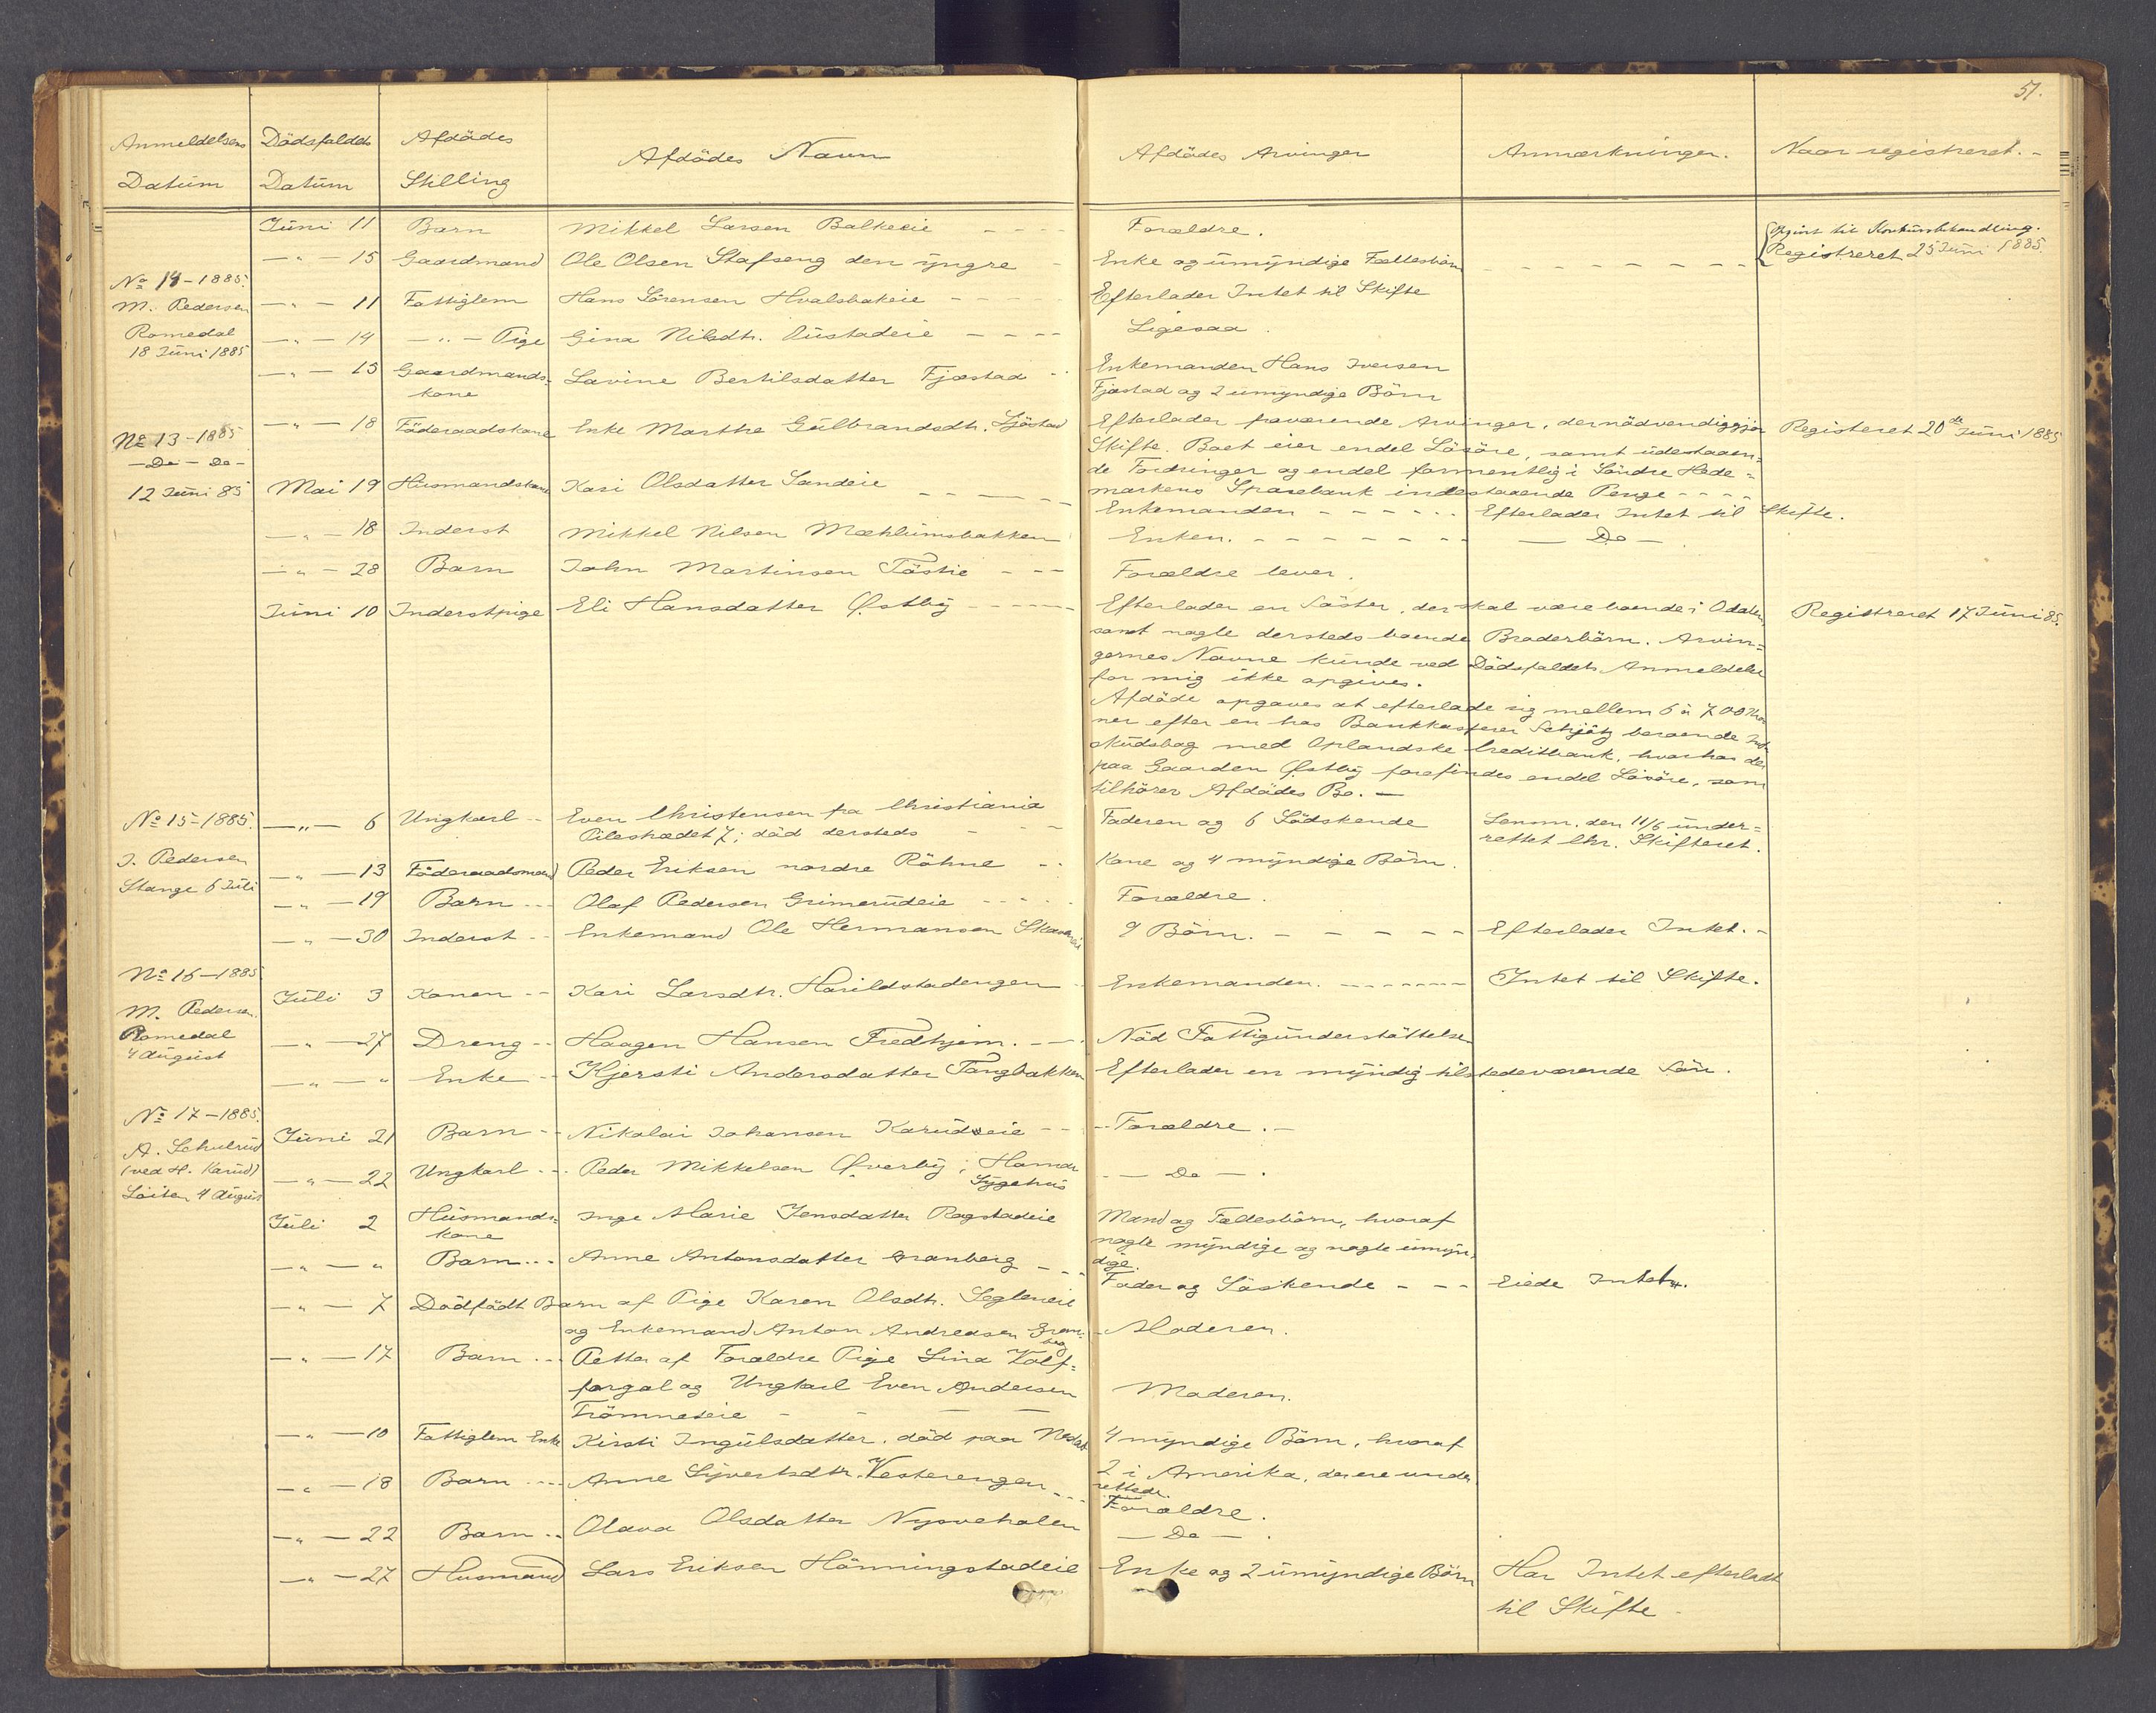 51.
Anmeldelsens Datum Dödsfaldets Datum Afdödes Stilling Afdödes Navn Afdödes Arvinger Anmærkninger. Naar registreret.
Juni 11 Barn Mikkel Larsen Balkeeie Forældre.
Opgivet til Konkursbehandling.
— " — 15 Gaardmand Ole Olsen Stafseng den yngre Enke og umyndige Fællesbörn Registreret 25 Juni 1885
No 14-1885.
M. Pedersen — " — 11 Fattiglem Hans Sörensen Hvalsbakeie Efterlader Intet til Skifte
Romedal — " — 14 — " — Pige Gina Nilsdtr. Austadeie Ligesaa.
18 Juni 1885
— " — 15 Gaardmands= Lavine Bertilsdatter Fjæstad Enkemanden Hans Iversen
kone Fjæstad og 2 umyndige Börn
— " — 18 Föderaadskone Enke Marthe Gulbrandsdtr. Sjöstad Efterlader fraværende Arvinger, der nödvendiggjör Registreret 20de Juni 1885
No 13-1885 Skifte. Boet eier endel Lösöre, samt udestaaen=
— Do — Do — de Fordringer og endel formentlig i Söndre Hede=
12 Juni 85 Mai 19 Husmandskone Kari Olsdatter Sandeie markens Sparebank indestaaende Penge
Enkemanden Efterlader Intet til Skifte.
— " — 18 Inderst Mikkel Nilsen Mæhlumsbakken Enken. — Do —
— " — 28 Barn John Martinsen Töstie Forældre lever.
Juni 10 Inderstpige Eli Hansdatter Østby Efterlader en Söster, der skal være boende i Odalen, Registreret 17 Juni 85.
samt nogle dersteds boende Broderbörn. Arvin=
gernes Navne kunde ved Dödsfaldets Anmeldelse
for mig ikke opgives.
Afdöde opgaves at efterlade sig mellem 6 à 700 Kro
ner efter en hos Bankkasserer Schjötz beroende Ind
skudsbog med Oplandske Creditbank, hvorhos der
paa Gaarden Østby forefindes endel Lösöre, som
tilhörer Afdödes Bo. —
No 15-1885. — " — 6 Ungkarl Even Christensen fra Christiania Faderen og 6 Södskende Lensm. den 11/6 under=
Pilestrædet 7; död dersteds rettet Chr. Skifteret.
J. Pedersen — " — 13 Föderaadsmand Peder Eriksen nordre Röhne Kone og 4 myndige Börn.
Stange 6 Juli
— " — 19 Barn Olaf Pedersen Grimerudeie Forældre.
— " — 30 Inderst Enkemand Ole Hermansen 9 Börn. Efterlader Intet.
No 16-1885
M. Pedersen. Juli 3 Konen Kari Larsdtr. Harildstadengen Enkemanden. Intet til Skifte.
Romedal — " — 27 Dreng Haagen Hansen Fredhjem. Nöd Fattigunderstöttelse
4 August
— " — " Enke Kjersti Andersdatter Tangbakken Efterlader en myndig tilstedeværende Sön.
No 17-1885.
A. Schulrud Juni 21 Barn Nikolai Johansen Karudseie Forældre.
(ved H. Karud) — " — 22 Ungkarl Peder Mikkelsen Øverby; Hamar — Do —.
Löiten 4 August Sygehus
Juli 2 Husmands= Inge Marie Jensdatter Rogstadeie Mand og Fællesbörn, hvoraf
kone nogle myndige og nogle umyn
— " — " Barn Anne Antonsdatter Granberg dige.
Fader og Söskende Eiede Intet.
— " — 7 Dödfödt Barn af Pige Karen Olsdtr. Segleneie
og Enkemand Anton Andreasen Gran=berg Moderen.
— " — 17 Barn Petter af Forældre Pige Lina Kolf=
forgal og Ungkarl Even Andersen Moderen.
Frömneseie
— " — 10 Fattiglem Enke Kirsti Ingulsdatter, död paa 4 myndige Börn, hvoraf
— " — 18 Barn Anne Syvertsdtr. Vesterengen 2 i Amerika, der ere under
rettede.
Forældre.
— " — 22 Barn Olava Olsdatter Nysveholen — Do —.
— " — 27 Husmand Lars Eriksen Hönningstadeie Enke og 2 umyndige Börn Har Intet efterladt
til Skifte